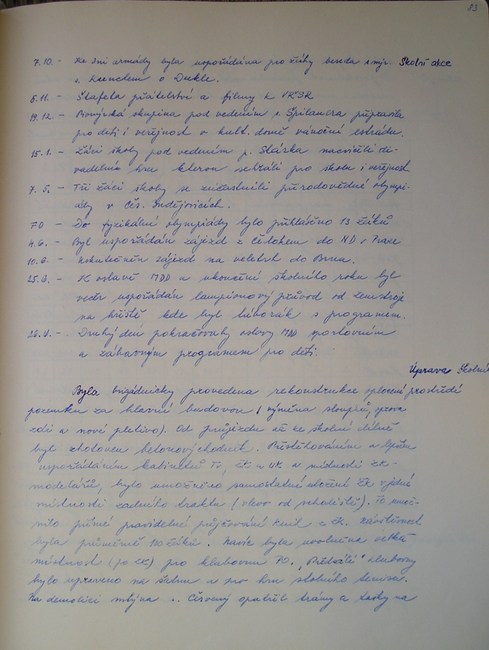 83
7.10. - Ke dni armády byla uspořádána pro žáky beseda s mjr. Školní akce
s. Krenchem o Dukle.
6.11. - Štafeta přátelství a filmy k VŘSR
19.12. - Pionýrská skupina pod vedením s. Špilauera připravila
pro děti i veřejnost v kult. domě vánoční estrádu.
15.1. - Žáci školy pod vedením p. Stárka nacvičili di-
vadelní hru kterou sehráli pro školu i veřejnost
7.5. - Tři žáci školy se zúčastnili přírodovědné olympi-
ády v Čes. Budějovicích.
FO - Do fyzikální olympiády bylo přihlášeno 13 žáků
4.6. - Byl uspořádán zájezd do ND v Praze
10.6. - Uskutečněn zájezd na veletrh do Brna.
25.6. - K oslavě MDD a ukončení školního roku byl
večer uspořádán lampionový průvod od
na hřiště kde byl táborák s programem.
26.6. - Druhý den pokračovaly oslavy MDD sportovním
a zábavným programem pro děti.
Úprava školního
Byla brigádnicky provedena rekonstrukce oplocení prostředí
pozemku za hlavní budovou (výměna sloupků, oprava
zdi a nové pletivo). Od průjezdu až ke školní dílně
byl zhotoven betonový chodník. Přestěhováním a lepším
uspořádáním kabinetů a v místnosti
modelářů, bylo umožněno samostatné uložení v jedné
místnosti zadního traktu (vlevo od schodiště). To umož-
nilo přímé pravidelné půjčování knih z ŽK. Návštěvnost
byla průměrně 70 žáků. Navíc byla uvolněna velká
místnost (po ) pro klubovnu PO. klubovny
bylo upraveno na a pro hru stolního tenisu.
Na demolici mlýna s. Červený trámy a na